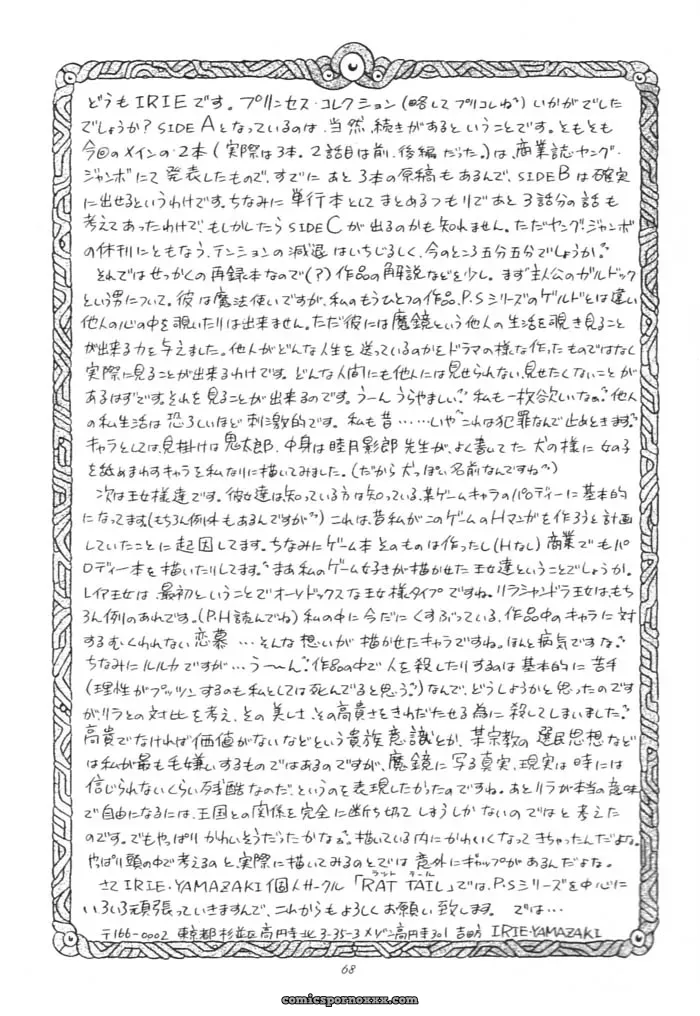 どうもIRIEです。プリンセス・コレクション(略してプリコレね)いかがでした
でしょうか?SIDE Aとなっているのは、当然、続きがあるということです。ともとも
今回のメインの2本(実際は3本。2話目は前、後編だった。)は、商業誌ヤング・
ジャンボにて発表したもので、すでにあと3本の原稿もあるんで、SIDE Bは確実
に出せるというわけです。ちなみに単行本としてまとめるつもりであと3話分の話も
考えてあったわけで、もしかしたらSIDE Cが出るのかも知れません。ただヤング・ジャンボ
の休刊にともなう、テンションの減退はいちじるしく、今のところ五分五分でしょうか。
それではせっかくの再録本なので(?)作品の解説などを少し。まず主人公のガルドック
という男について。彼は魔法使いですが、私のもうひとつの作品、P.Sシリーズのゲルドとは違い
他人の心の中を覗いたりは出来ません。ただ彼には魔鏡という他人の生活を覗き見ること
が出来る力を与えました。他人がどんな人生を送っているのかをドラマの様な作ったものではなく
実際に見ることが出来るわけです。どんな人間にも他人には見せられない、見せたくないことが
あるはずです。それを見ることが出来るのです。うーんうらやましい。私も一枚欲いなぁ。他人
の私生活は恐ろしいほど刺激的です。私も昔……いやこれは犯罪なんで止めときます。
キャラとしては、見掛けは鬼太郎、中身は睦月影郎先生が、よく書してた犬の様に女の子
を舐めまわすキャラを私なりに描いてみました。(だから犬っぽい名前なんですね)
次は王女様達です。彼女達は知っている方は知っている、某ゲームキャラのパロディーに基本的
になってます(もちろん例外もあるんですが)これは、昔私がこのゲームのHマンガを作ろうと計画
していたことに起因してます。ちなみにゲーム本そのものは作ったし(Hなし)商業でもパ
ロディー本を描いたりしてます。まあ私のゲーム好きが描かせた王女達ということでしょうか。
レイア王女は最初ということでオーソドックスな王女様タイプですね。リラシャンドラ王女は、もち
ろん例のあれです。(P.H読んでね)私の中に今だにくすぶっている、作品中のキャラに対
するむくわれない恋慕…そんな想いが描かせたキャラですね。ほんと病気ですな。
ちなみにルルカですが…う〜ん。作品の中で人を殺したりするのは基本的に苦手
(理性がプッツンするのも私としては死んでると思う。)なんで、どうしようかと思ったのです
がリラとの対比を考え、その美しさ、その高貴さをきわだたせる為に殺してしまいました。
高貴でなければ価値がないなどという貴族意識とか、某宗教の選民思想など
は私が最も毛嫌いするものではあるのですが、魔鏡に写る真実、現実は時には
信じられないくらい残酷なのだ、というのを表現したかったのですね。あとリラが本当の意味
で自由になるには、王国との関係を完全に断ち切ってしまうしかないのではと考えた
のです。でもやっぱりかわいそうだったかなぁ。描いている内にかわいくなってきちゃったんだよな。
やっぱり頭の中で考えるのと、実際に描いてみるのとでは意外にギャップがあるんだよな。
さてIRIE・YAMAZAKI個人サークル「RAT TAIL」では、P.Sシリーズを中心に
いろいろ頑張っていきますんで、これからもよろしくお願い致します。では…
〒166-0002 東京都杉並区高円寺北3-35-3メゾン高円寺301 吉田方 IRIE・YAMAZAKI
68
comicspornoxxx.com